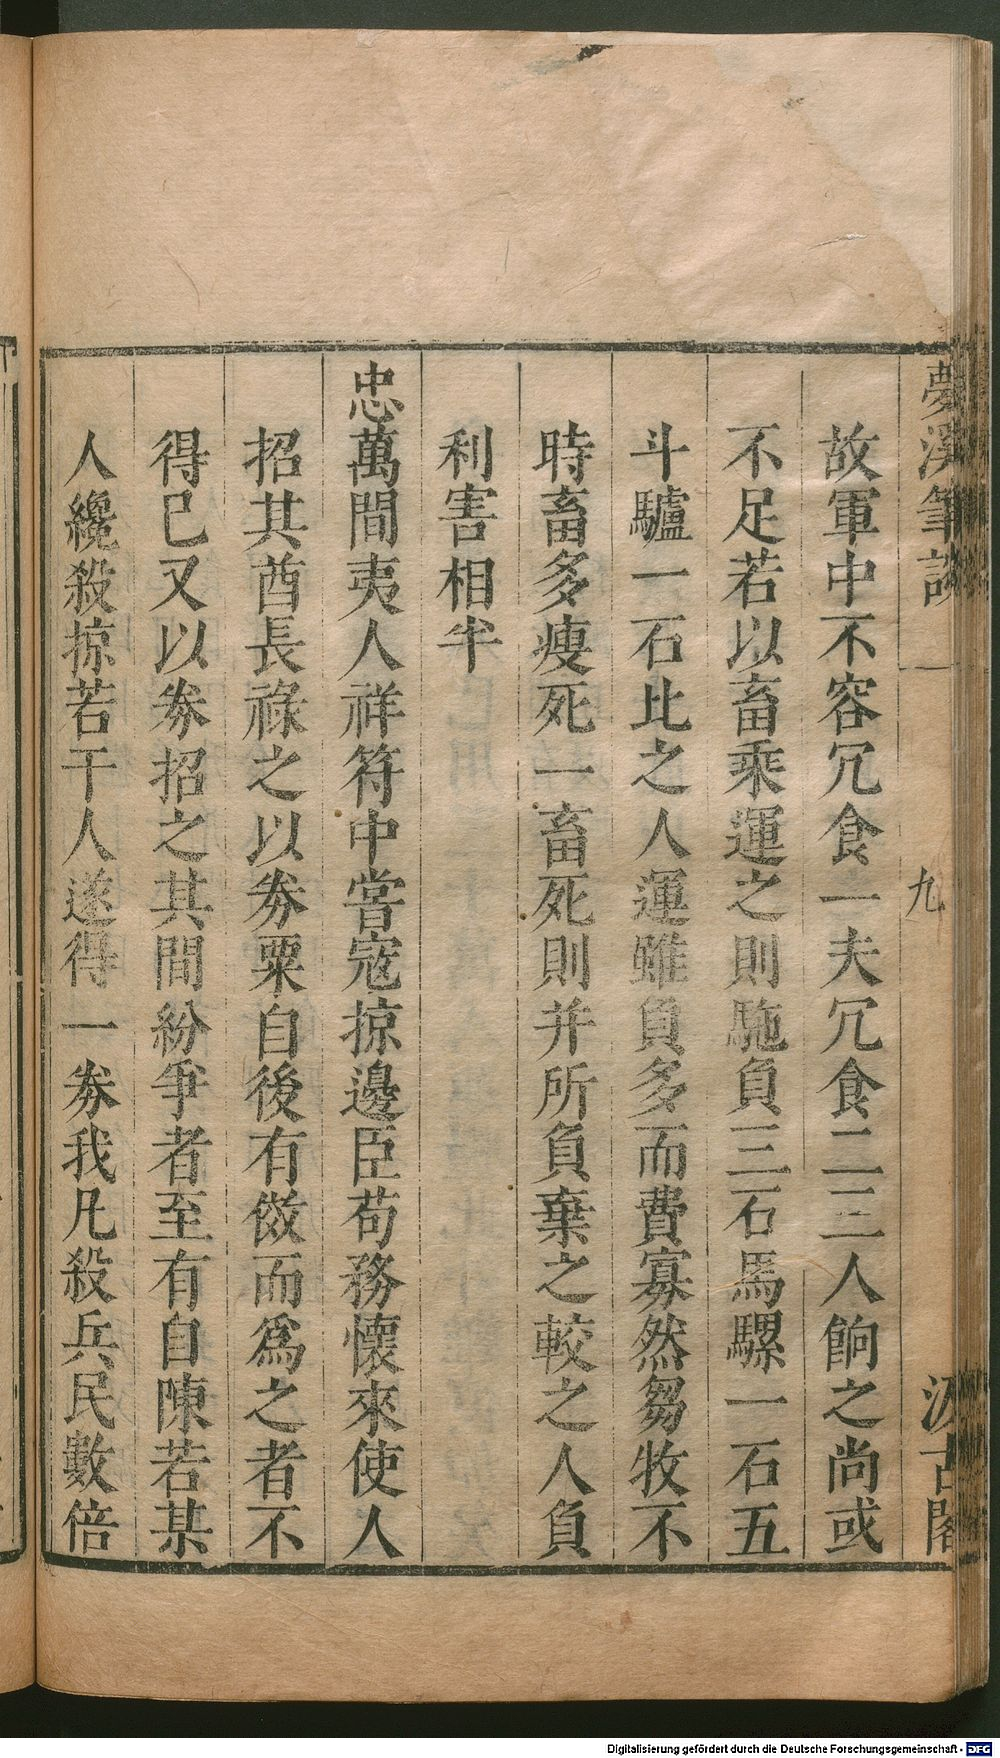 夢溪筆談
九
汲古閣
故軍中不容冗食一夫冗食二三人餉之尚或
不足若以畜乘運之則馳負三石馬騾一石五
斗驢一石比之人運雖負多而費寡然芻牧不
時畜多瘦死一畜死則并所負棄之較之人負
利害相半
忠萬間夷人祥符中嘗寇掠邊臣苟務懷來使人
招其酋長祿之以券粟自後有傚而為之者不
得已又以券招之其間紛爭者至有自陳若某
人纔殺掠若干人遂得一券我凡殺兵民數倍
Digitalisierung gefördert durch die Deutsche Forschungsgemeinschaft - DFG